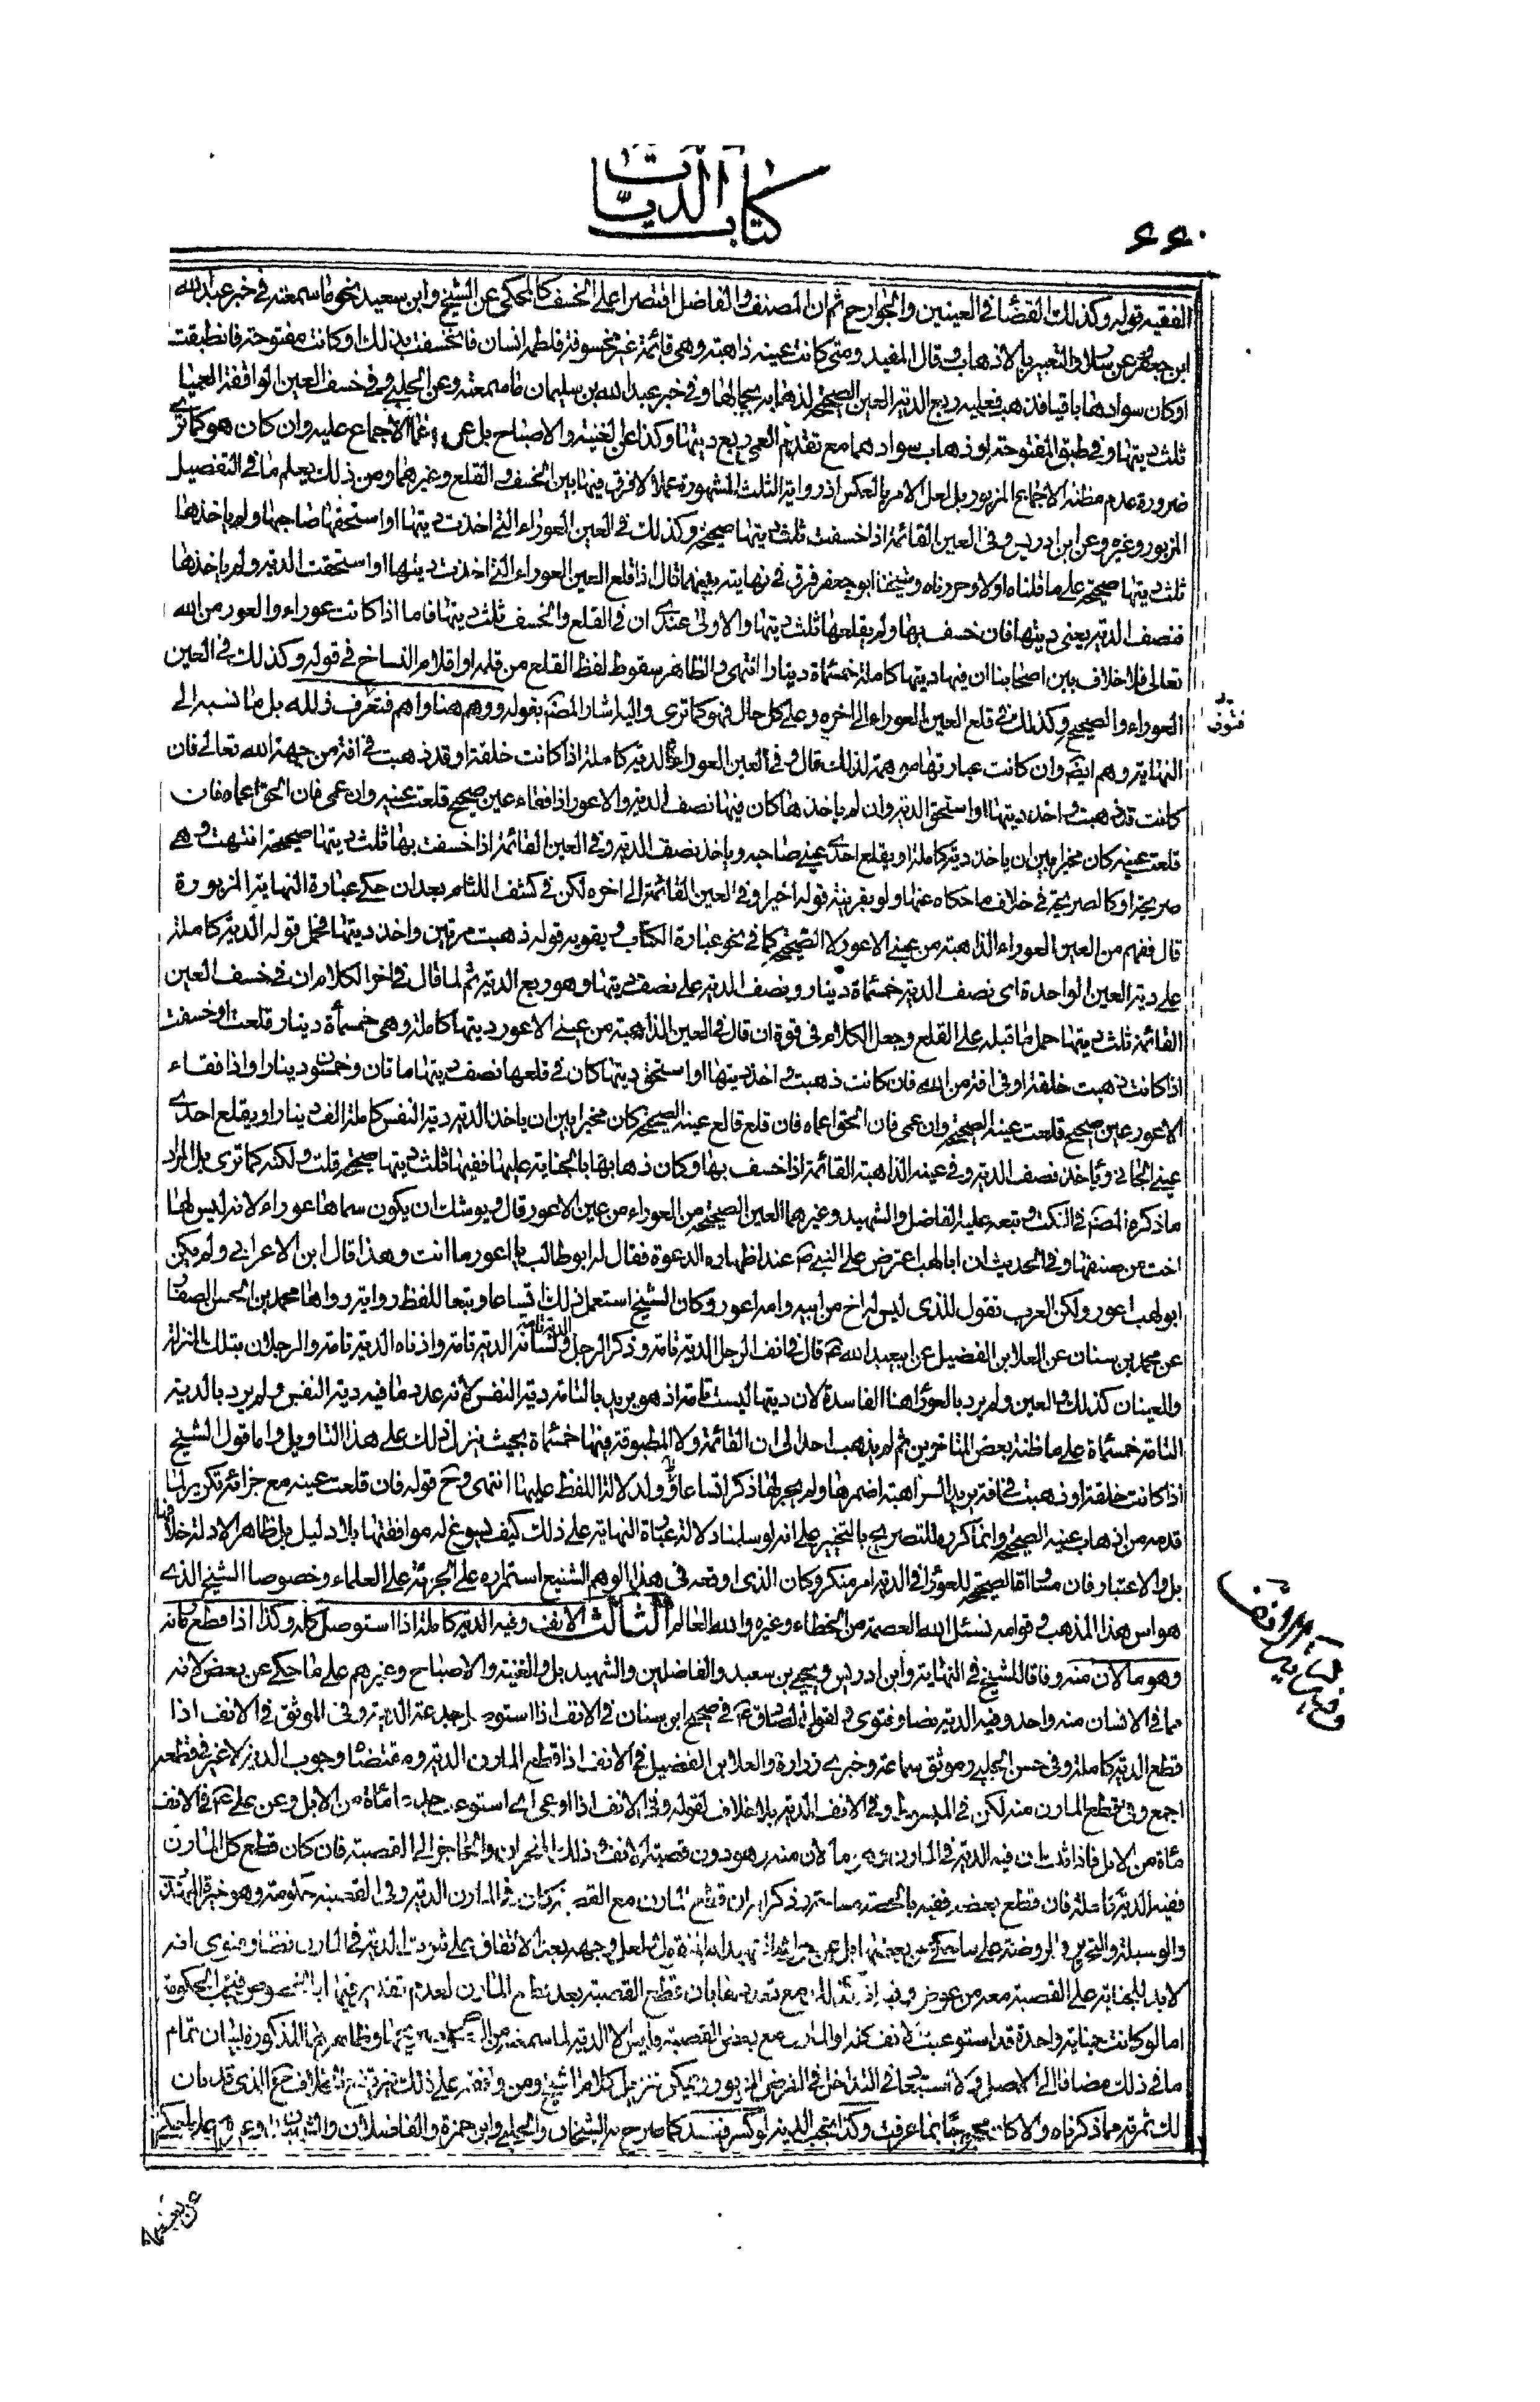 كتاب الديات
۶۶۰
الفقيه قوله وكذلك القضاء في العينين والجوارح ثم ان المصنف والفاضل اقتصرا على الخسف كالمحكي عن الشيخ وابن سعيد نحو ما سمعته في خبر عبدالله
ابن جعفر عن التعبير بالاذهاب وقال المفيد ومتى كانت عينه ذاهبة وهي قائمة غير مخسوفة فلطمه انسان فانخسفت بذلك او كانت مفتوحة فانطبقت
او كان سوادها باقيا فذهب فعليه ربع الدية العين الصحيحة لذهابه بجمالها وفي خبر عبدالله بن سليمان ما سمعته وعن الحلبي وفي خسف العين الواقفة العمياء
ثلث ديتها وفي طبق المفتوحة او ذهاب سوادهما مع تقدم العمى ربع ديتها وكذا عن الغنية والاصباح بل عن الاجماع عليه وان كان هو كما ترى
ضرورة عدم مظنة الاجماع المزبور بل لعل الامر بالعكس اذ رواية الثلث المشهورة عملا لا فرق فيها بين الخسف والقلع وغيرهما ومن ذلك يعلم ما في التفصيل
المزبور وغيره وعن ابن ادريس وفي العين القائمة اذا خسفت ثلث ديتها صحيحة وكذلك في العين العوراء التي اخذت ديتها او استحقها صاحبها ولم ياخذها
ثلث ديتها صحيحة على ما قلناه اولا وحررناه وشيخنا ابو جعفر فرق في نهايته بينهما قال اذا قلع العين العوراء التي اخذت ديتها او استحقت الدية ولم ياخذها
فنصف الدية يعني ديتها فان خسف بها ولم يقلعها ثلث ديتها والاولى عندي ان في القلع والخسف ثلث ديتها فاما اذا كانت عوراء والعور من الله
تعالى فلا خلاف بين اصحابنا ان فيها ديتها كاملة خمسمأة دينار انتهى والظاهر سقوط لفظ القلع من قلمه او اقلام النساخ في قوله وكذلك في العين
العوراء والصحيح وكذلك في قلع العين العوراء الى اخره وعلى كل حال فهو كما ترى واليه اشار المصنف بقوله ووهم هنا واهم فتعرف ذلله بل ما نسبه الى
النهاية وهم ايضا وان كانت عبارتها موهمة لذلك قال وفي العين العوراء الدية كاملة اذا كانت خلقة او قد ذهبت في افة من جهة الله تعالى فان
كانت قد ذهبت واخذ ديتها او استحق الدية وان لم ياخذها كان فيها نصف الدية والاعور اذا فقاء عين صحيح قلعت عينه وان عمى فان الحق اعماه فان
قلعت عينه كان مخيرا بين ان ياخذ دية كاملة او يقلع احدى عيني صاحبه وياخذ نصف الدية وفي العين القائمة اذا خسف بها ثلث ديتها صحيحة انتهت وهي
صريحة او كالصريحة في خلاف ما حكاه عنها ولو بقرينة قوله اخيرا وفي العين القائمة الى اخره لكن في كشف اللثام بعد ان حكى عبارة النهاية المزبورة
قال ففهم من العين العوراء الذاهبة من عيني الاعور لا الصحيحة كما في نحو عبارة الكتاب ويقويه قوله ذهبت مرتين واخذ ديتها فحمل قوله الدية كاملة
على دية العين الواحدة اى نصف الدية خمسمأة دينار ونصف الدية على نصف ديتها وهو ربع الدية ثم لما قال في اخر الكلام ان في خسف العين
القائمة ثلث ديتها حمل ما قبله على القلع وجعل الكلام في قوة ان قال في العين الذاهبة من عيني الاعور ديتها كاملة وهي خمسمأة دينار قلعت او خسفت
اذا كانت ذهبت خلقة او في افة من الله فان كانت ذهبت واخذ ديتها او استحق ديتها كان في قلعها نصف ديتها ماتان وخمسون دينارا واذا فقاء
الاعور عين صحيح قلعت عينه الصحيحة وان عمى فان الحق اعماه فان قلع قالع عينه الصحيحة كان مخيرا بين ان ياخذ الدية دية النفس كاملة الف دينار او يقلع احدى
عيني الجاني وياخذ نصف الدية وفي عينه الذاهبة القائمة اذا خسف بها وكان ذهابها بالجناية عليها ففيها ثلث ديتها صحيحة قلت ولكنه كما ترى بل المراد
ما ذكره المصنف في النكت وتبعه عليه الفاضل والشهيد وغيرهما العين الصحيحة من العوراء من عين الاعور قال ويوشك ان يكون سماها عوراء لانه ليس لها
اخت من صنفها وفي الحديث ان ابا لهب اعترض على النبي ص عند اظهاره الدعوة فقال له ابو طالب يا اعور ما انت وهذا قال ابن الاعرابي ولم يكن
ابو لهب اعور ولكن العرب تقول للذى ليس له اخ من ابيه وامه اعور وكان الشيخ استعمل ذلك اتساعا وتبعا للفظ رواية رواها محمد بن الحسن الصفار
عن محمد بن سنان عن العلا بن الفضيل عن ابيعبدالله ع قال في انف الرجل الدية تامة وذكر الرجل الدية تامة ولسانه الدية تامة واذناه الدية تامة والرجلان بتلك المنزلة
والعينان كذلك والعين ولم يرد بالعوراء هنا الفاسدة لان ديتها ليست تامة اذ هو يريد بالتامة دية النفس لانه عدد ما فيه دية النفس ولم يرد بالدية
التامة خمسمأة على ما ظنه بعض المتاخرين ثم لم يذهب احد الى ان القائمة ولا المطبوقة فيها خمسمأة بحيث ينزل ذلك على هذا التاويل واما قول الشيخ
اذا كانت خلقة او ذهبت في افة يريد الذاهبة اضمرها ولم يجر لها ذكر اتساعا ولدلالة اللفظ عليها انتهى وح قوله فان قلعت عينه مع جزائه تكرير لما
قدمه من اذهاب عينه الصحيحة وانما كرره للتصريح بالتخيير على انه لو سلمنا دلالة عبارة النهاية على ذلك كيف يسوغ له موافقتها بلا دليل بل ظاهر الادلة خلافها
بل والاعتبار فان مساواة الصحيحة للعوراء في الدية امر منكر وكان الذى اوقعه في هذا الوهم الشنيع استمراره على الجرئة على العلماء وخصوصا الشيخ الذى
هو اس هذا المذهب وقوامه نسئل الله العصمة من الخطاء وغيره والله العالم الثالث الانف وفيه الدية كاملة اذا استوصل كله وكذا اذا قطع مارنه
وهو ما لان منه وفاقا للشيخ في النهاية وابن ادريس ويحيى بن سعيد والفاضلين والشهيد بل والغنية والاصباح وغيرهم على ما حكى عن بعض لانه
مما في الانسان منه واحد وفيه الدية نصا وفتوى ولقول الصادق ع في صحيح ابن سنان في الانف اذا استوصل جدعه الدية وفي الموثق في الانف اذا
قطع الدية كاملة وفي حسن الحلبي وموثق سماعة وخبرى زرارة والعلا بن الفضيل في الانف اذا قطع المارن الدية ومقتضاها وجوب الدية لا غير في قطعه
اجمع وفي قطع المارن منه لكن في المبسوط وفي الانف الدية بلا خلاف لقوله وفي الانف اذا اوعى اى استوعب جدعا مأة من الابل وعن علي ع في الانف
مأة من الابل فاذا ثبت ان فيه الدية في المارن وهو ما لان منه وهو دون قصبة الانف وذلك المنخران والحاجز الى القصبة فان كان قطع كل المارن
ففيه الدية كاملة فان قطع بعضه ففيه بالحصة مساحة وذكر ان قطع المارن مع القصبة كان في المارن الدية وفي القصبة حكومة وهو خيرة
والوسيلة والتحرير والروضة على ما حكى عن بعضها
لابد للجناية على القصبة معه من عوض وفيه
اما لو كانت جناية واحدة قد استوعبت الانف كله او المارن مع بعض القصبة فليس الا الدية لما سمعته من
ما في ذلك مضافا الى الاصل ولا استبعاد في التداخل في الفرض المزبور ويمكن تنزيل كلام الشيخ ومن وافقه على ذلك
لك ثمرته مما ذكرناه والا كان محجوجا بما عرفت وكذا تجب الدية لو كسر ففسد كما صرح به الشيخان والحلي وابن حمزة والفاضلان
فتوى
وفي دية الانف
عن بعضهم